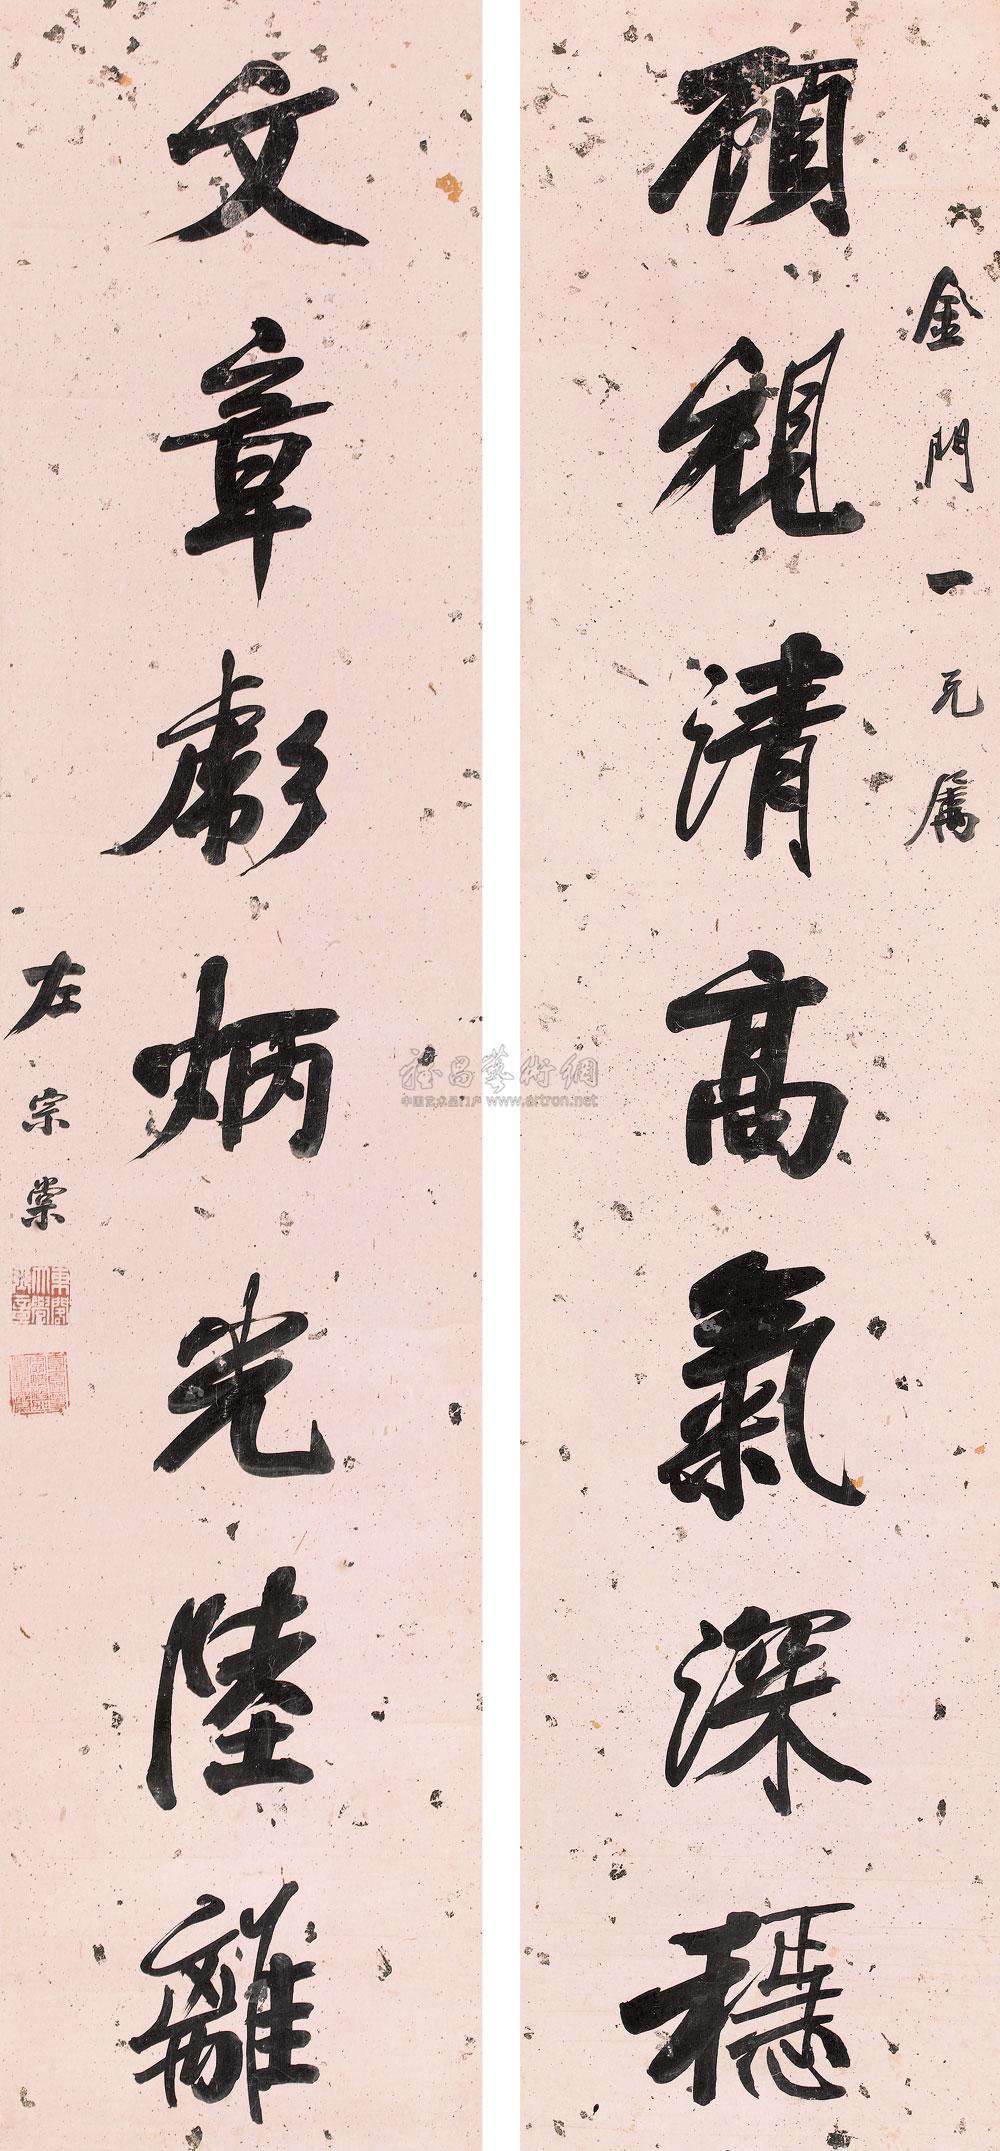 金門一兄属
顧視清高氣深穩
文章彪炳光陸離
左宗棠
東閣大學士章
雅昌藝術網
中国艺术品门户 www.artron.net